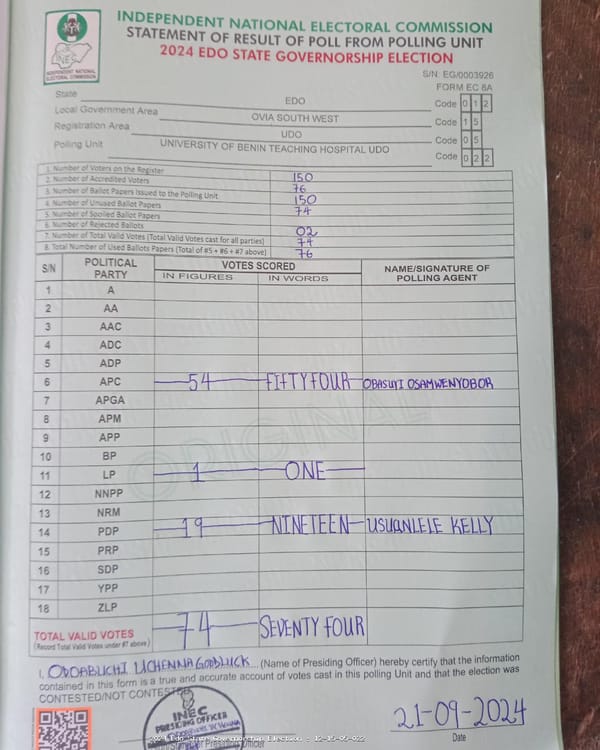 INDEPENDENT NATIONAL ELECTORAL COMMISSION
STATEMENT OF RESULT OF POLL FROM POLLING UNIT
2024 EDO STATE GOVERNORSHIP ELECTION
INEC
INDEPENDENT NATIONAL
ELECTORAL COMMISSION
S/N EG/0003926
FORM EC 8A
State EDO Code 0 1 2
Local Government Area OVIA SOUTH WEST Code 1 5
Registration Area UDO Code 0 5
Polling Unit UNIVERSITY OF BENIN TEACHING HOSPITAL UDO Code 0 2 2
1. Number of Voters on the Register 150
2. Number of Accredited Voters 76
3. Number of Ballot Papers Issued to the Polling Unit 150
4. Number of Unused Ballot Papers 74
5. Number of Spoiled Ballot Papers
6. Number of Rejected Ballots 02
7. Number of Total Valid Votes (Total Valid Votes cast for all parties) 74
8. Total Number of Used Ballots Papers (Total of #5 + #6 + #7 above) 76
S/N POLITICAL PARTY VOTES SCORED NAME/SIGNATURE OF POLLING AGENT
IN FIGURES IN WORDS
1 A
2 AA
3 AAC
4 ADC
5 ADP
6 APC 54 FIFTY FOUR OBASUYI OSAMWENYOBOR
7 APGA
8 APM
9 APP
10 BP
11 LP 1 ONE
12 NNPP
13 NRM
14 PDP 19 NINETEEN USUANLELE KELLY
15 PRP
16 SDP
17 YPP
18 ZLP
ORIGINAL
TOTAL VALID VOTES 74 SEVENTY FOUR
(Record Total Valid Votes under #7 above)
I, ODOABUCHI UCHENNA GOODLUCK (Name of Presiding Officer) hereby certify that the information
contained in this form is a true and accurate account of votes cast in this polling Unit and that the election was
CONTESTED/NOT CONTESTED
INEC
PRESIDING OFFICER
21-09-2024
Date
2024 Edo State Governorship Election - 12-15-05-022
Presiding Officer